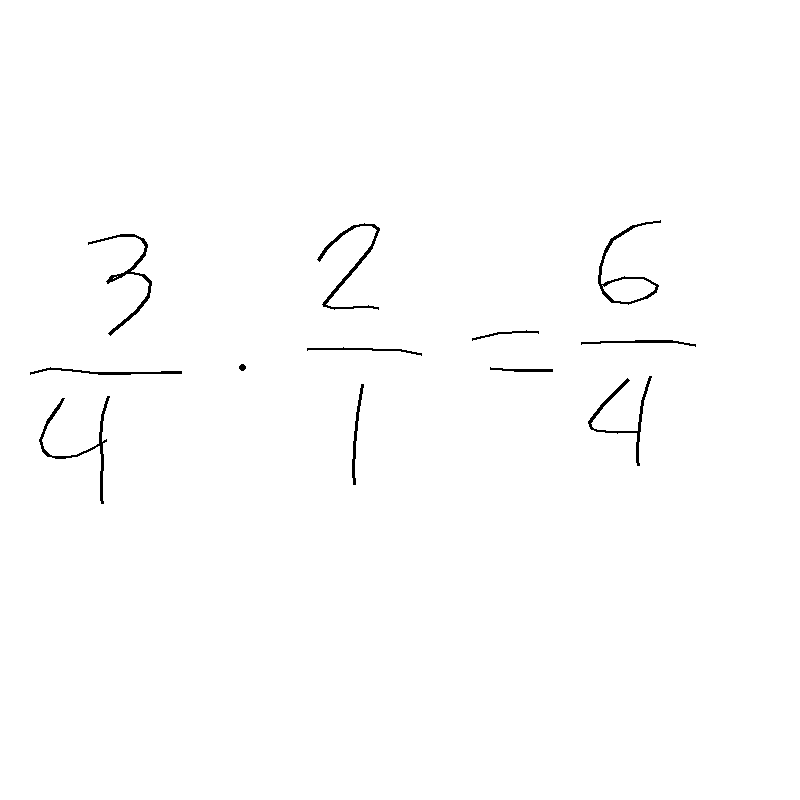 3/4 · 2/1 = 6/4